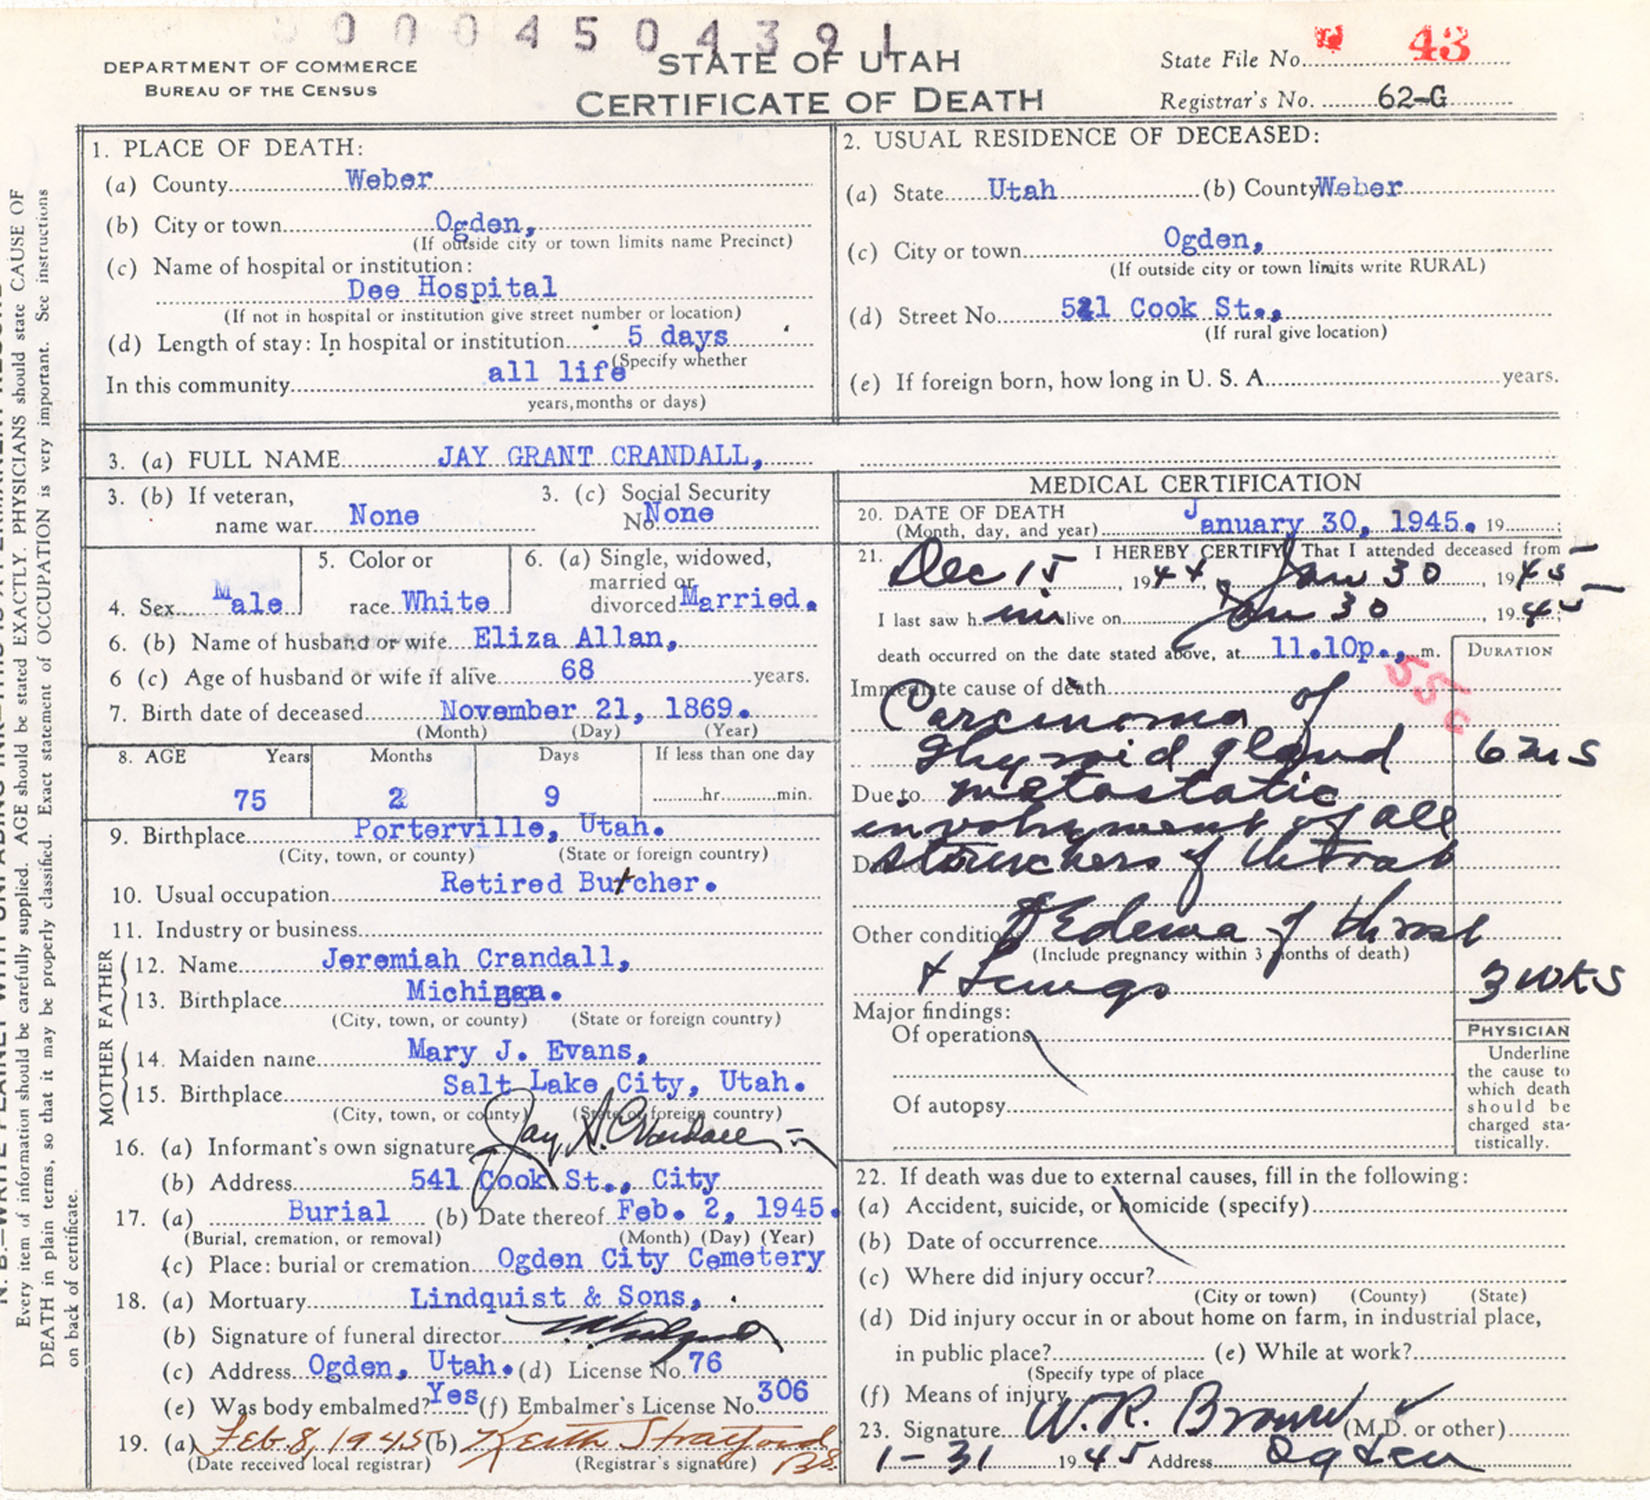 0004504391
DEPARTMENT OF COMMERCE
BUREAU OF THE CENSUS
STATE OF UTAH
CERTIFICATE OF DEATH
State File No. 43
Registrar's No. 62-G
Every item of information should be carefully supplied. AGE should be stated EXACTLY. PHYSICIANS should state CAUSE OF
DEATH in plain terms, so that it may be properly classified. Exact statement of OCCUPATION is very important. See instructions
on back of certificate.
1. PLACE OF DEATH:
(a) County Weber
(b) City or town Ogden,
(If outside city or town limits name Precinct)
(c) Name of hospital or institution:
Dee Hospital
(If not in hospital or institution give street number or location)
(d) Length of stay: In hospital or institution 5 days
(Specify whether
In this community all life
years, months or days)
2. USUAL RESIDENCE OF DECEASED:
(a) State Utah (b) County Weber
(c) City or town Ogden,
(If outside city or town limits write RURAL)
(d) Street No. Cook St.,
(If rural give location)
(e) If foreign born, how long in U. S. A. years.
3. (a) FULL NAME JAY GRANT CRANDALL,
3. (b) If veteran,
name war None
3. (c) Social Security
No. None
4. Sex Male
5. Color or
race White
6. (a) Single, widowed,
married or
divorced Married.
6. (b) Name of husband or wife Eliza Allan,
6 (c) Age of husband or wife if alive 68 years.
7. Birth date of deceased November 21, 1869.
(Month) (Day) (Year)
8. AGE Years Months Days If less than one day
75 2 9 hr. min.
9. Birthplace Porterville, Utah.
(City, town, or county) (State or foreign country)
10. Usual occupation Retired Butcher.
11. Industry or business
FATHER
12. Name Jeremiah Crandall,
13. Birthplace Michigan.
(City, town, or county) (State or foreign country)
MOTHER
14. Maiden name Mary J. Evans,
15. Birthplace Salt Lake City, Utah.
(City, town, or county) (State or foreign country)
16. (a) Informant's own signature Jay A. Crandall
(b) Address 541 Cook St., City
17. (a) Burial (b) Date thereof Feb. 2, 1945.
(Burial, cremation, or removal) (Month) (Day) (Year)
(c) Place: burial or cremation Ogden City Cemetery
18. (a) Mortuary Lindquist & Sons,
(b) Signature of funeral director
(c) Address Ogden, Utah. (d) License No. 76
(e) Was body embalmed? Yes (f) Embalmer's License No. 306
19. (a) Feb 8, 1945 (b) Keith Stratford
(Date received local registrar) (Registrar's signature)
MEDICAL CERTIFICATION
20. DATE OF DEATH
(Month, day, and year) January 30, 1945. 19 ;
21. I HEREBY CERTIFY, That I attended deceased from
Dec 15 1944, Jan 30, 1945
I last saw him alive on Jan 30, 1945;
death occurred on the date stated above, at 11.10p., m.
DURATION
55c
Immediate cause of death
Carcinoma of
thyroid gland 6 ms
Due to metastatic
involvement of all
Due to structures of throat
Other conditions Edema of throat
(Include pregnancy within 3 months of death)
+ Lungs 3 wks
Major findings:
Of operations
Of autopsy
PHYSICIAN
Underline
the cause to
which death
should be
charged sta-
tistically.
22. If death was due to external causes, fill in the following:
(a) Accident, suicide, or homicide (specify)
(b) Date of occurrence
(c) Where did injury occur?
(City or town) (County) (State)
(d) Did injury occur in or about home on farm, in industrial place,
in public place? (e) While at work?
(Specify type of place
(f) Means of injury
23. Signature W. R. Brown (M.D. or other)
1-31 1945 Address Ogden